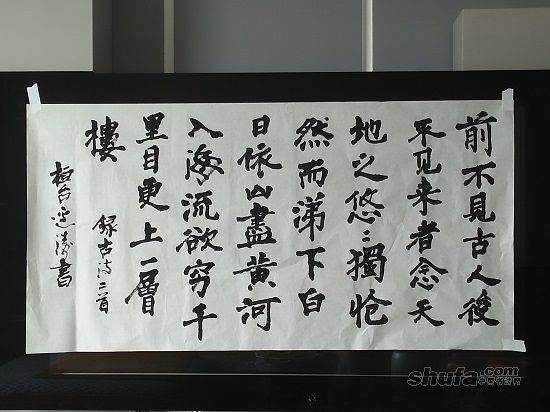 前不見古人後
不见来者念天
地之悠〻獨怆
然而涕下白
日依山盡黄河
入海流欲穷千
里目更上一層
樓
録古诗二首
桓台涛書
shufa.com